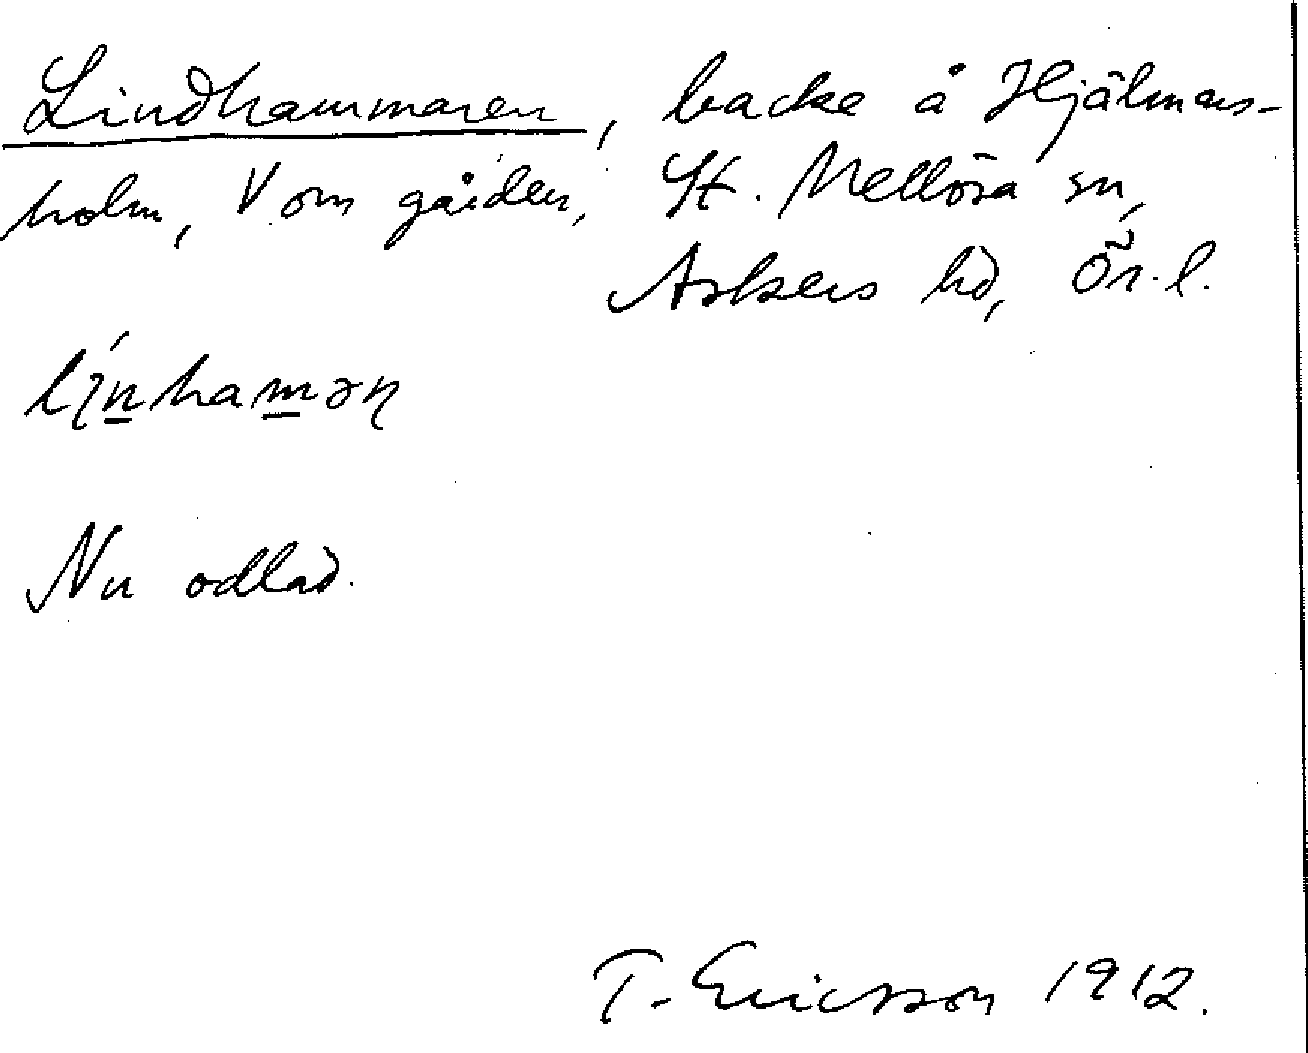 Lindhammaren, backe å Hjälmars-
holm, V om gården, St. Mellösa sn,
Askers hd, Ör. l.
lı̨́n̲ham̲əṇ
Nu odlad.
T. Ericsson 1912.